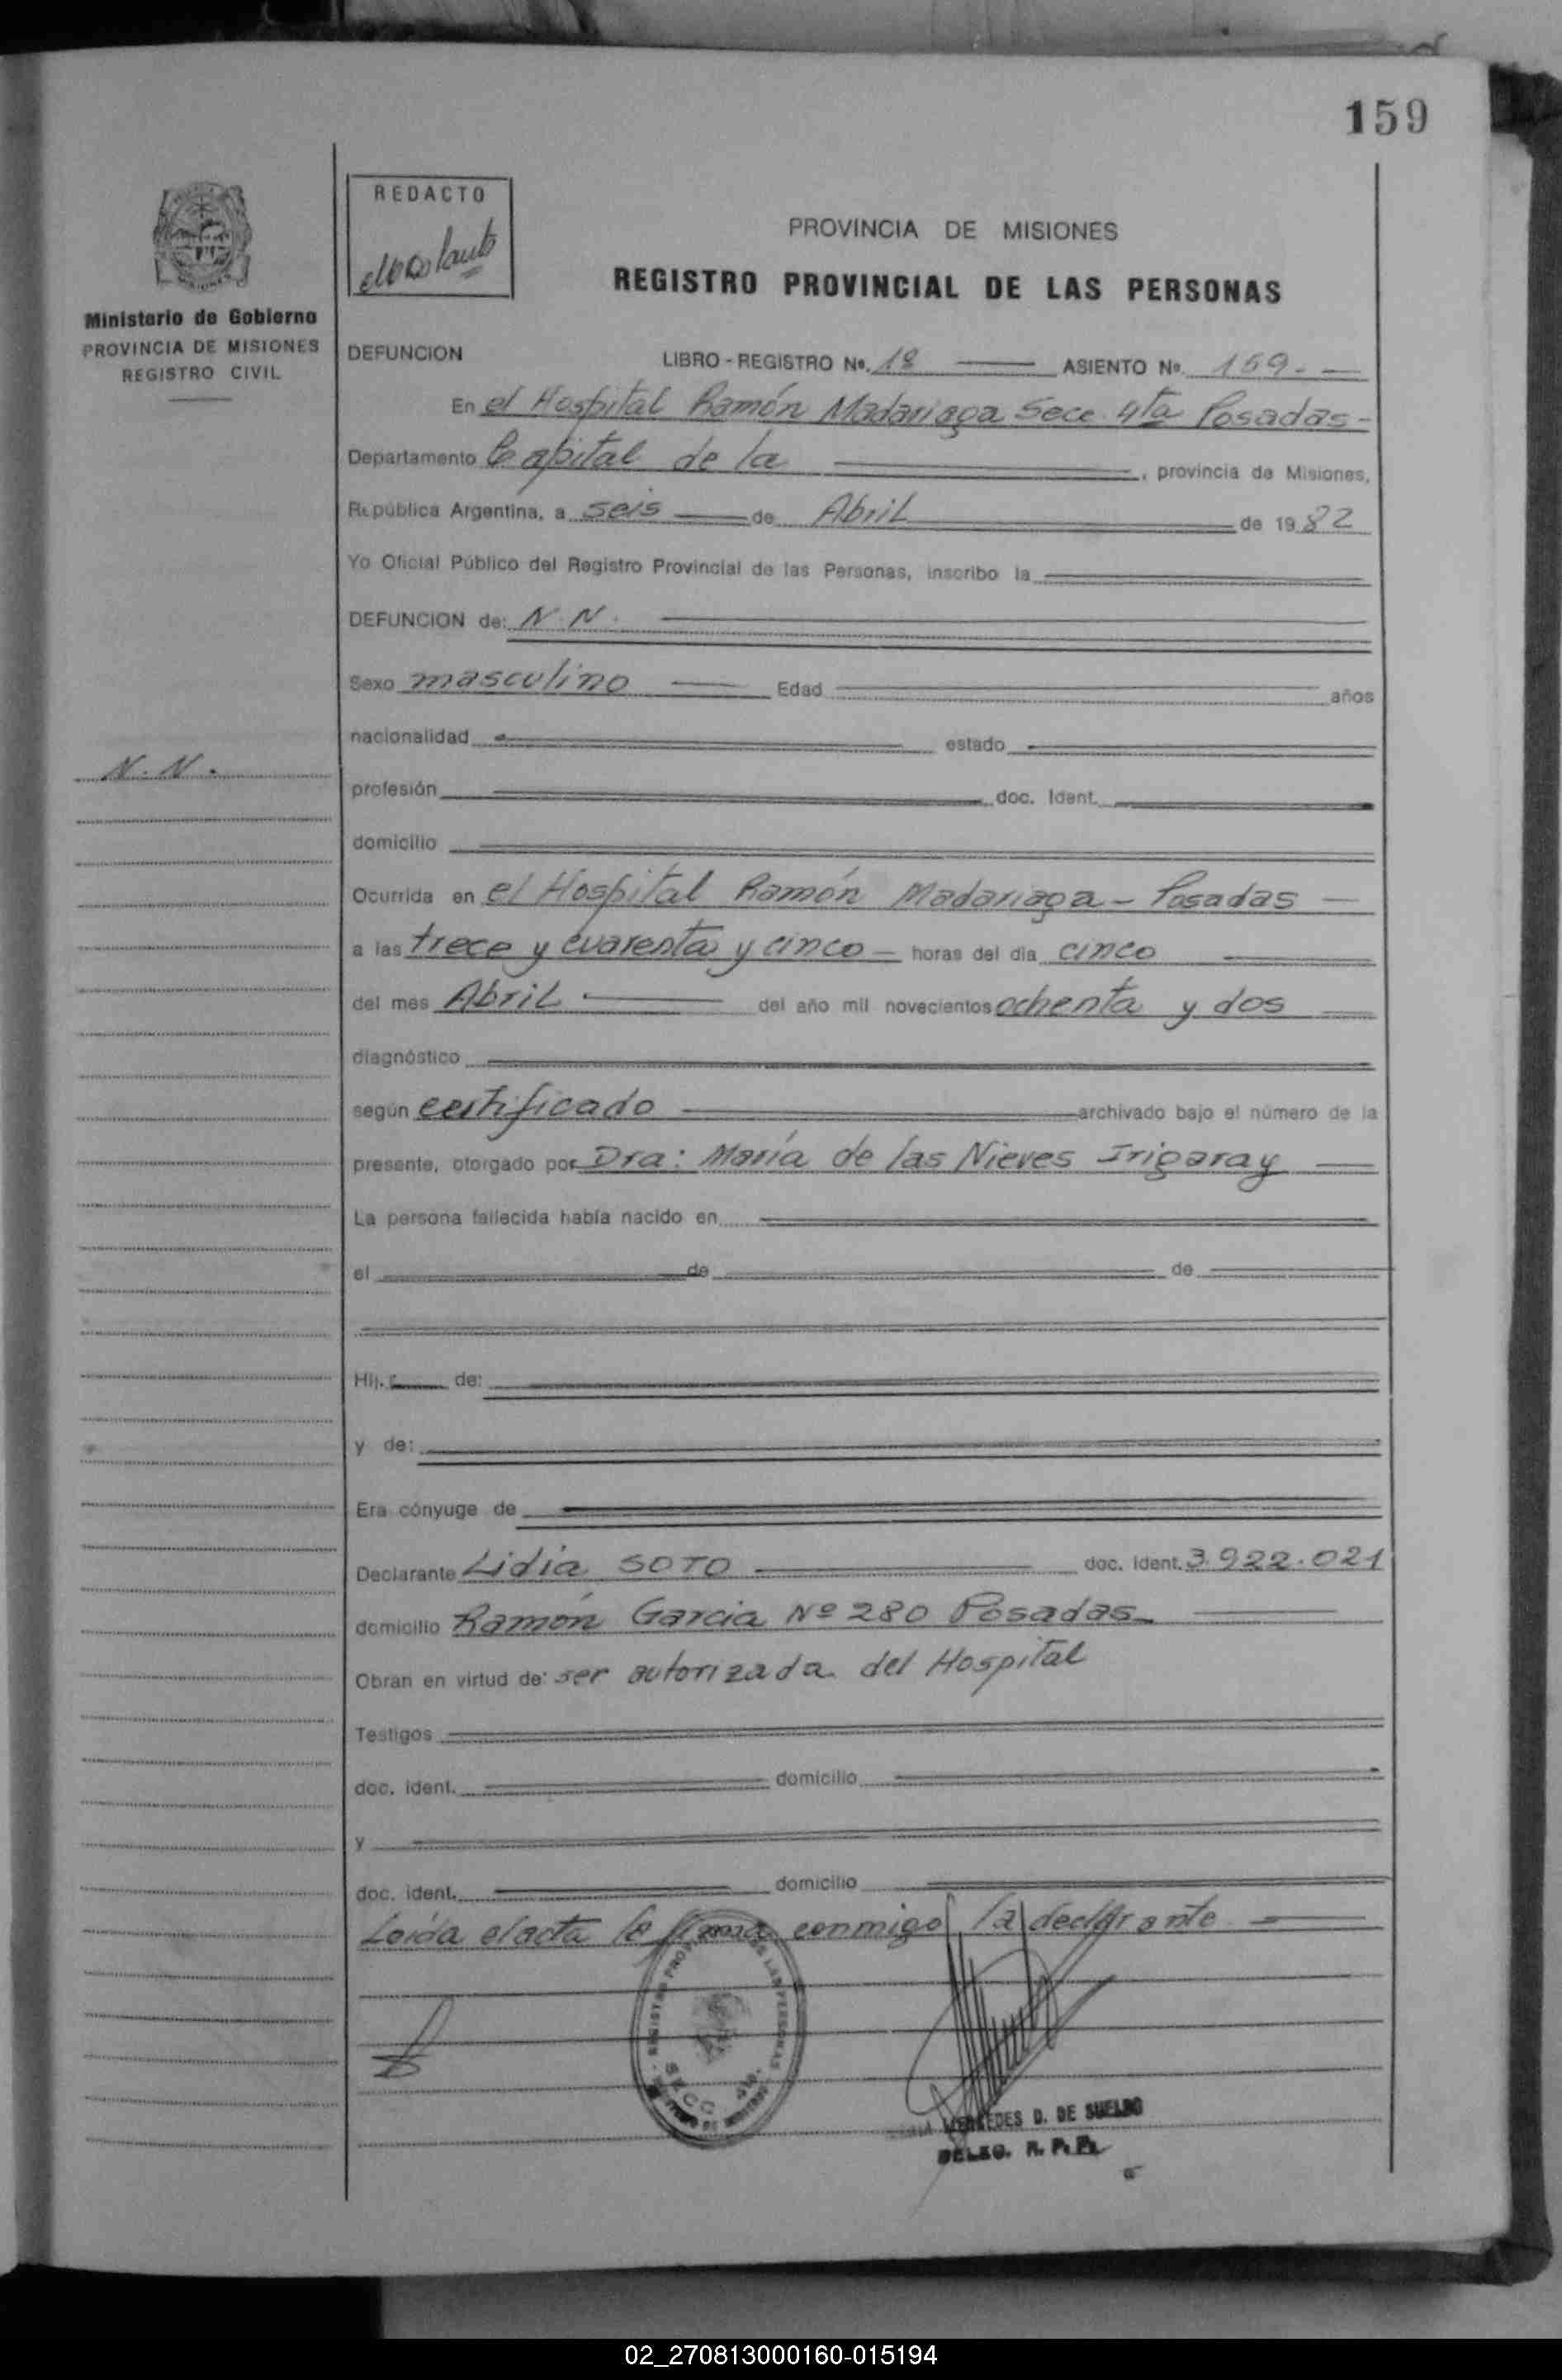 159
REDACTO
PROVINCIA DE MISIONES
REGISTRO PROVINCIAL DE LAS PERSONAS
Ministerio de Gobierno
PROVINCIA DE MISIONES
REGISTRO CIVIL
DEFUNCION LIBRO - REGISTRO Nº. 1º ASIENTO Nº. 159.-
En el Hospital Ramón Madariaga Secc. 4ta Posadas-
Departamento Capital de la , provincia de Misiones,
República Argentina, a seis de Abril de 1982
Yo Oficial Público del Registro Provincial de las Personas, inscribo la
DEFUNCION de: N.N.
Sexo masculino Edad años
nacionalidad estado
N.N.
profesión doc. Ident.
domicilio
Ocurrida en el Hospital Ramón Madariaga - Posadas
a las trece y cuarenta y cinco horas del día cinco
del mes Abril del año mil novecientos ochenta y dos
diagnóstico
según certificado archivado bajo el número de la
presente, otorgado por Dra: María de las Nieves Irigaray
La persona fallecida había nacido en
el de de
Hij. de:
y de:
Era cónyuge de
Declarante Lidia SOTO doc. ident. 3.922.021
domicilio Ramón Garcia Nº 280 Posadas
Obran en virtud de: ser autorizada del Hospital
Testigos
doc. ident. domicilio
y
doc. ident. domicilio
Leída el acta la firma conmigo la declarante
REGISTRO PROV DE LAS PERSONAS
SECC. 4ta.
MERCEDES D. DE SUELDO
DELEG. R. P. P.
02_270813000160-015194